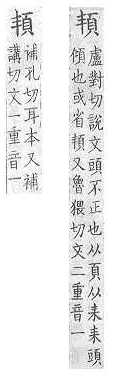 頛
盧對切說文頭不正也从頁从耒耒頭
傾也或省頛又魯猥切文二重音一
補孔切耳本又補
講切文一重音一